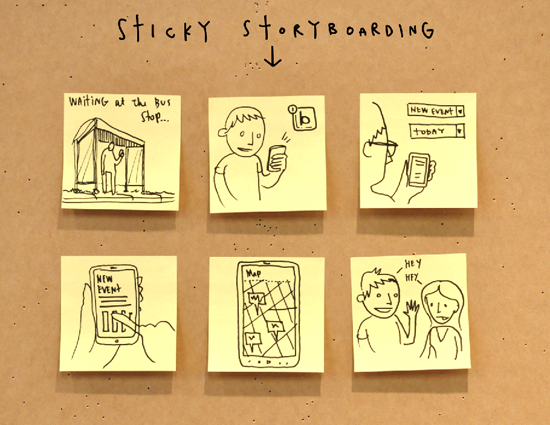 STICKY STORYBOARDING
WAITING at the BUS
Stop...
b
NEW EVENT
TODAY
NEW
EVENT
Map
HEY
HEY